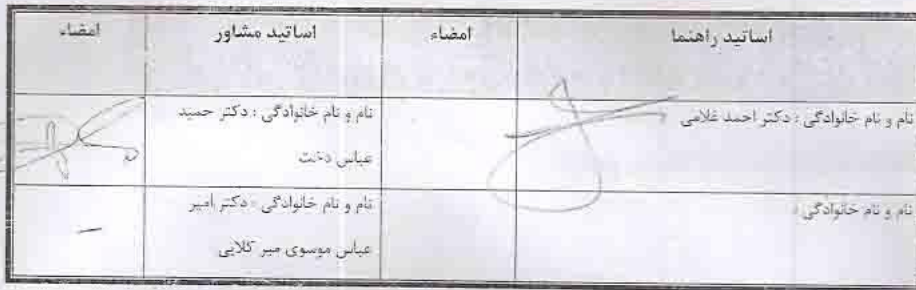 اساتید راهنما
امضاء
اساتید مشاور
امضاء
نام و نام خانوادگی : دکتر احمد غلامی
نام و نام خانوادگی : دکتر حمید
عباس دخت
نام و نام خانوادگی :
نام و نام خانوادگی : دکتر امیر
عباس موسوی میر کلایی